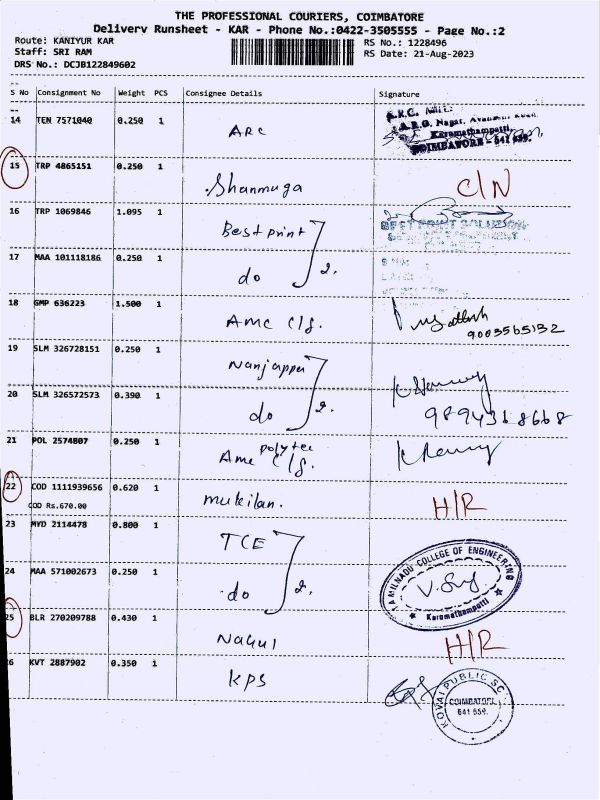 THE PROFESSIONAL COURIERS, COIMBATORE
Delivery Runsheet - KAR - Phone No.:0422-3505555 - Page No.:2
Route: KANIYUR KAR
RS No.: 1228496
Staff: SRI RAM
RS Date: 21-Aug-2023
DRS No.: DCJB122849602
S No Consignment No Weight PCS Consignee Details Signature
14 TEN 7571040 0.250 1 ARC
A.R.G. Nagar,
Karamathampatti
COIMBATORE - 641 659.
15 TRP 4865151 0.250 1 Shanmuga C/N
16 TRP 1069846 1.095 1 Best print
BEST PRINT SOLUTION
17 MAA 101118186 0.250 1 do 2.
18 GMP 636223 1.500 1 AMC Clg.
9003565132
19 SLM 326728151 0.250 1 Nanjappa
20 SLM 326572573 0.390 1 do 2.
9894318668
21 POL 2574807 0.250 1 AMC polytec Clg.
22 COD 1111939656 0.620 1 mukilan. H/R
COD Rs.670.00
23 MYD 2114478 0.800 1 TCE
TAMILNADU COLLEGE OF ENGINEERING
Karamathampatti
24 MAA 571002673 0.250 1 do 2.
25 BLR 270209788 0.430 1 Nakul H/R
26 KVT 2887902 0.350 1 KPS
KOVAI PUBLIC SC
COIMBATORE
641 659.